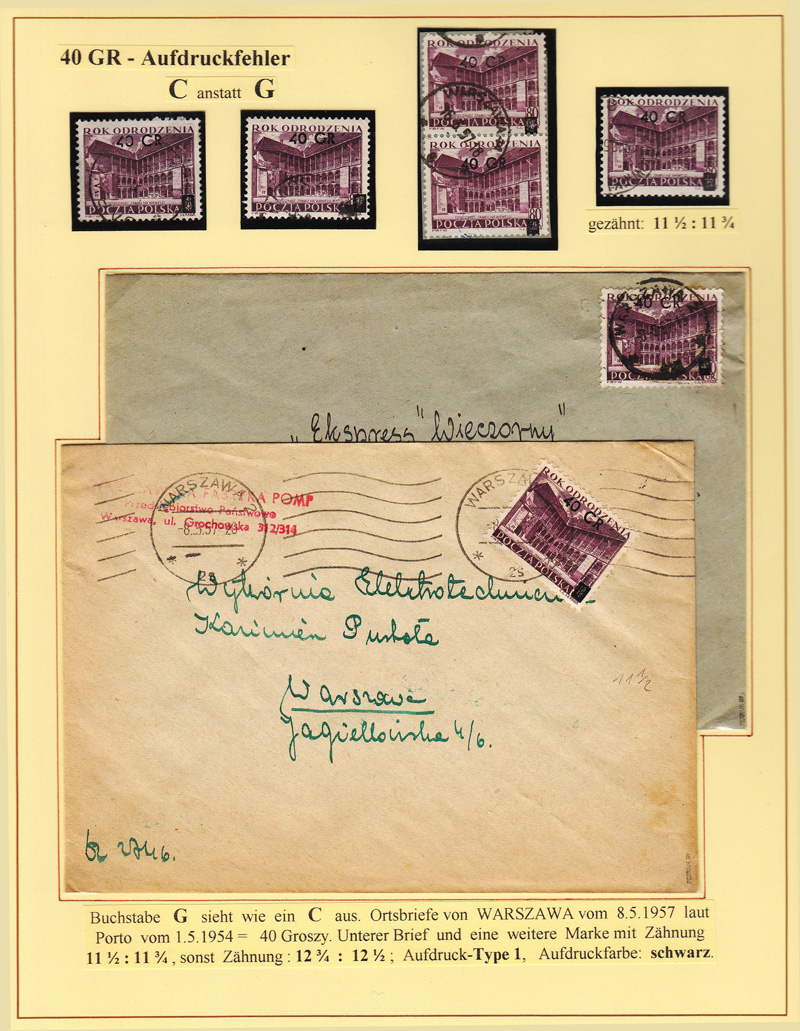 40 GR - Aufdruckfehler
C anstatt G
ROK ODRODZENIA
40 CR
POCZTA POLSKA
ROK ODRODZENIA
40 CR
POCZTA POLSKA
ROK ODRODZENIA
40 CR
WARSZAWA
POCZTA POLSKA 80
40 CR
POCZTA POLSKA 80
ROK ODRODZENIA
40 CR
POCZTA POLSKA
gezähnt: 11 ½ : 11 ¾
WARSZAWA
ROK ODRODZENIA
40 CR
POCZTA POLSKA
„Ekspress" Wieczorny"
WARSZAWA
FABRYKA POMP
Przedsiębiorstwo Państwowe
Warszawa, ul. Grochowska 312/314
WARSZAWA
ROK ODRODZENIA
40 CR
POCZTA POLSKA
Wytwórnia
Warszawa
Jagiellońska 4/6.
11 ½
Buchstabe G sieht wie ein C aus. Ortsbriefe von WARSZAWA vom 8.5.1957 laut
Porto vom 1.5.1954 = 40 Groszy. Unterer Brief und eine weitere Marke mit Zähnung
11 ½ : 11 ¾ , sonst Zähnung : 12 ¾ : 12 ½ ; Aufdruck-Type 1, Aufdruckfarbe: schwarz.